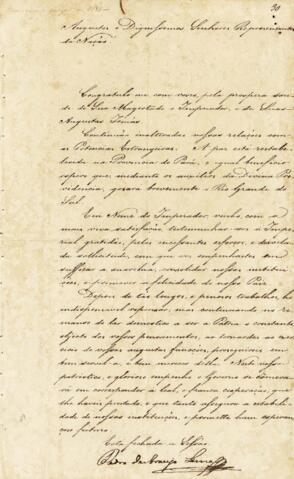 30
Augustos e Dignissimos Senhores Representantes
da Nação
Congratulo me com vosco, pela prospera sau-
de de Sua Magestade o Imperador, e de Suas
Augustas Irmãs
Continuão inalteradas nossas relações com
as Potencias Estrangeiras. A paz está restabe-
lecida na Provincia do Pará, e igual beneficio
espero que, mediante os auxilios da Divina Pro-
videncia, gozará brevemente o Rio Grande do
Sul.
Em Nome do Imperador venho com a
mais viva satisfação testemunhar vos a Impe-
rial gratidão, pelos incessantes esforços, e desvela-
da solicitude, com que vos empenhastes em
suffocar a anarchia, consolidar nossas institui-
ções, e promover a felicidade de nosso Paiz
Depois de tão longos, e penosos trabalhos, he
indispensavel repousar; mas continuando no re-
manso da vida domestica a ser a Patria o constante
objecto dos vossos pensamentos, ao tornardes ao exer-
cicio de vossas augustas funcções, proseguireis em
bem della. Neste nosso
patriotico, e glorioso empenho o Governo se
a leal, e franca cooperação, que
lhe haveis prestado, e que tanto afiança a estabilida-
de de nossas instituições, e promette hum esperan-
çoso futuro.
Está fechada a Sessão
Pedro de Araujo Lima